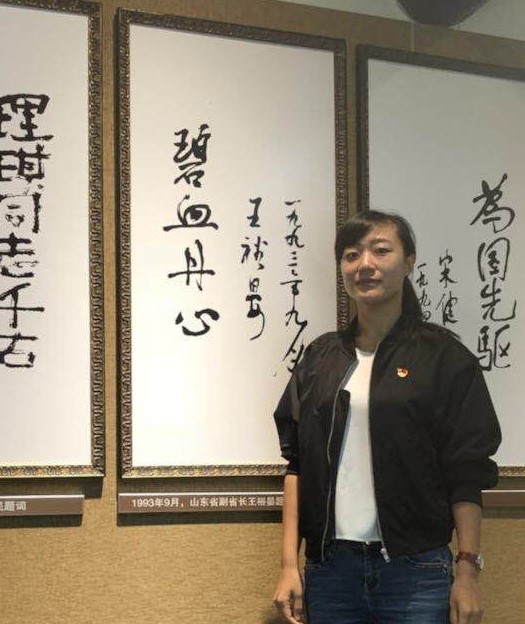 理琪同志千古
碧血丹心
王裕晏
一九九三年九月
為国先驱
宋健
一九九四
题词
1993年9月，山东省副省长王裕晏题